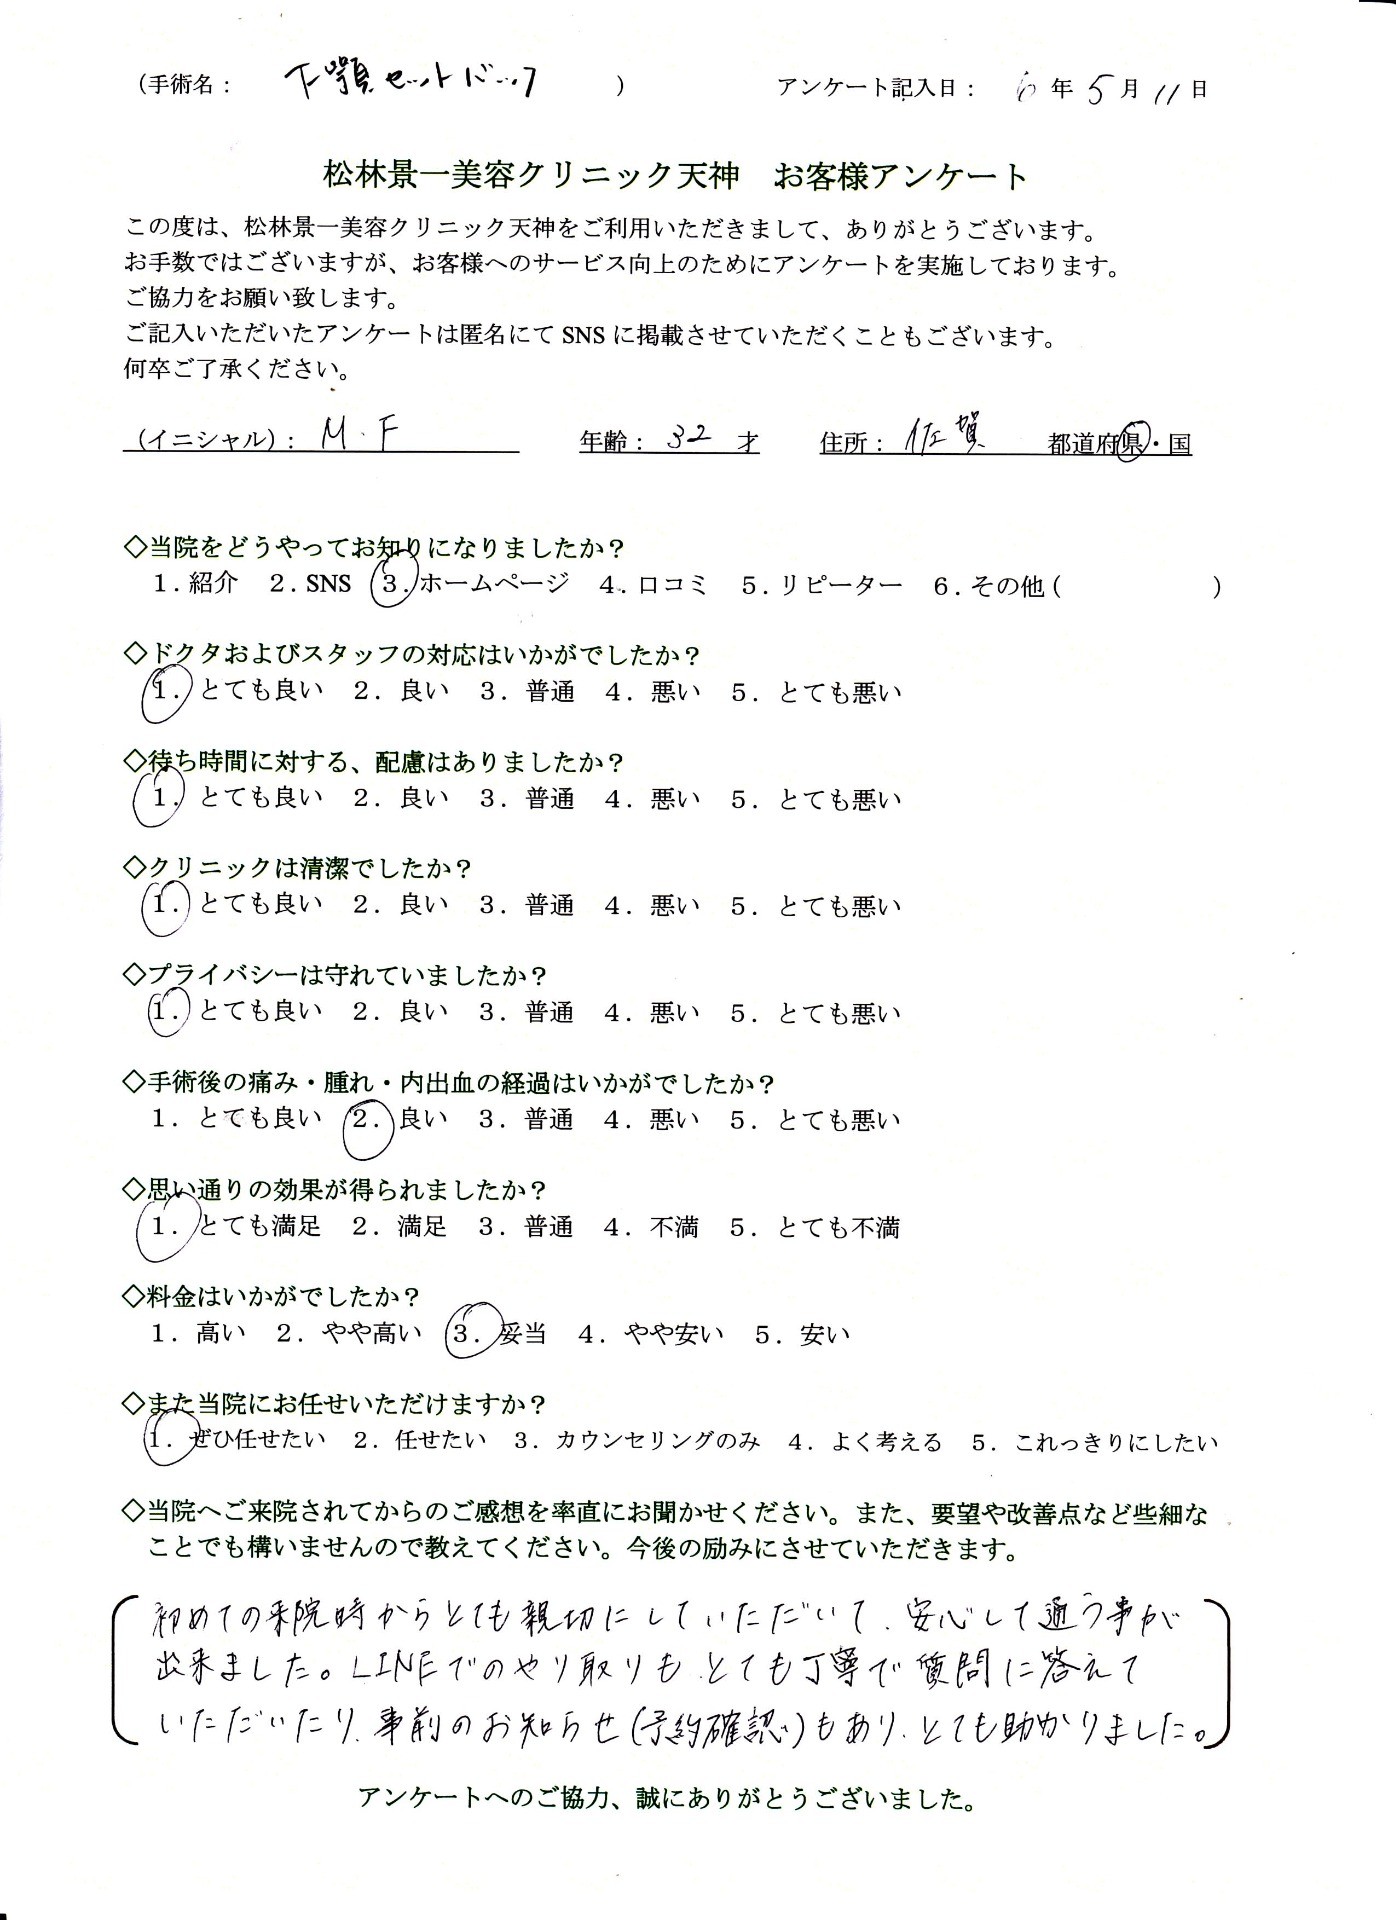 （手術名： 下顎セットバック ） アンケート記入日： 6 年 5 月 11 日
松林景一美容クリニック天神 お客様アンケート
この度は、松林景一美容クリニック天神をご利用いただきまして、ありがとうございます。
お手数ではございますが、お客様へのサービス向上のためにアンケートを実施しております。
ご協力をお願い致します。
ご記入いただいたアンケートは匿名にて SNS に掲載させていただくこともございます。
何卒ご了承ください。
（イニシャル）： M.F 年齢： 32 才 住所： 佐賀 都道府県・国
◇当院をどうやってお知りになりましたか？
1．紹介 2．SNS 3．ホームページ 4．口コミ 5．リピーター 6．その他（ ）
◇ドクタおよびスタッフの対応はいかがでしたか？
1．とても良い 2．良い 3．普通 4．悪い 5．とても悪い
◇待ち時間に対する、配慮はありましたか？
1．とても良い 2．良い 3．普通 4．悪い 5．とても悪い
◇クリニックは清潔でしたか？
1．とても良い 2．良い 3．普通 4．悪い 5．とても悪い
◇プライバシーは守れていましたか？
1．とても良い 2．良い 3．普通 4．悪い 5．とても悪い
◇手術後の痛み・腫れ・内出血の経過はいかがでしたか？
1．とても良い 2．良い 3．普通 4．悪い 5．とても悪い
◇思い通りの効果が得られましたか？
1．とても満足 2．満足 3．普通 4．不満 5．とても不満
◇料金はいかがでしたか？
1．高い 2．やや高い 3．妥当 4．やや安い 5．安い
◇また当院にお任せいただけますか？
1．ぜひ任せたい 2．任せたい 3．カウンセリングのみ 4．よく考える 5．これっきりにしたい
◇当院へご来院されてからのご感想を率直にお聞かせください。また、要望や改善点など些細な
ことでも構いませんので教えてください。今後の励みにさせていただきます。
初めての来院時からとても親切にしていただいて、安心して通う事が
出来ました。LINEでのやり取りも、とても丁寧で質問に答えて
いただいたり、事前のお知らせ(予約確認)もあり、とても助かりました。
アンケートへのご協力、誠にありがとうございました。